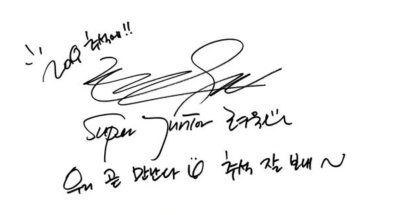 2009 추석에!!
Super Junior 려욱
우리 곧 만난다 추석 잘 보내~